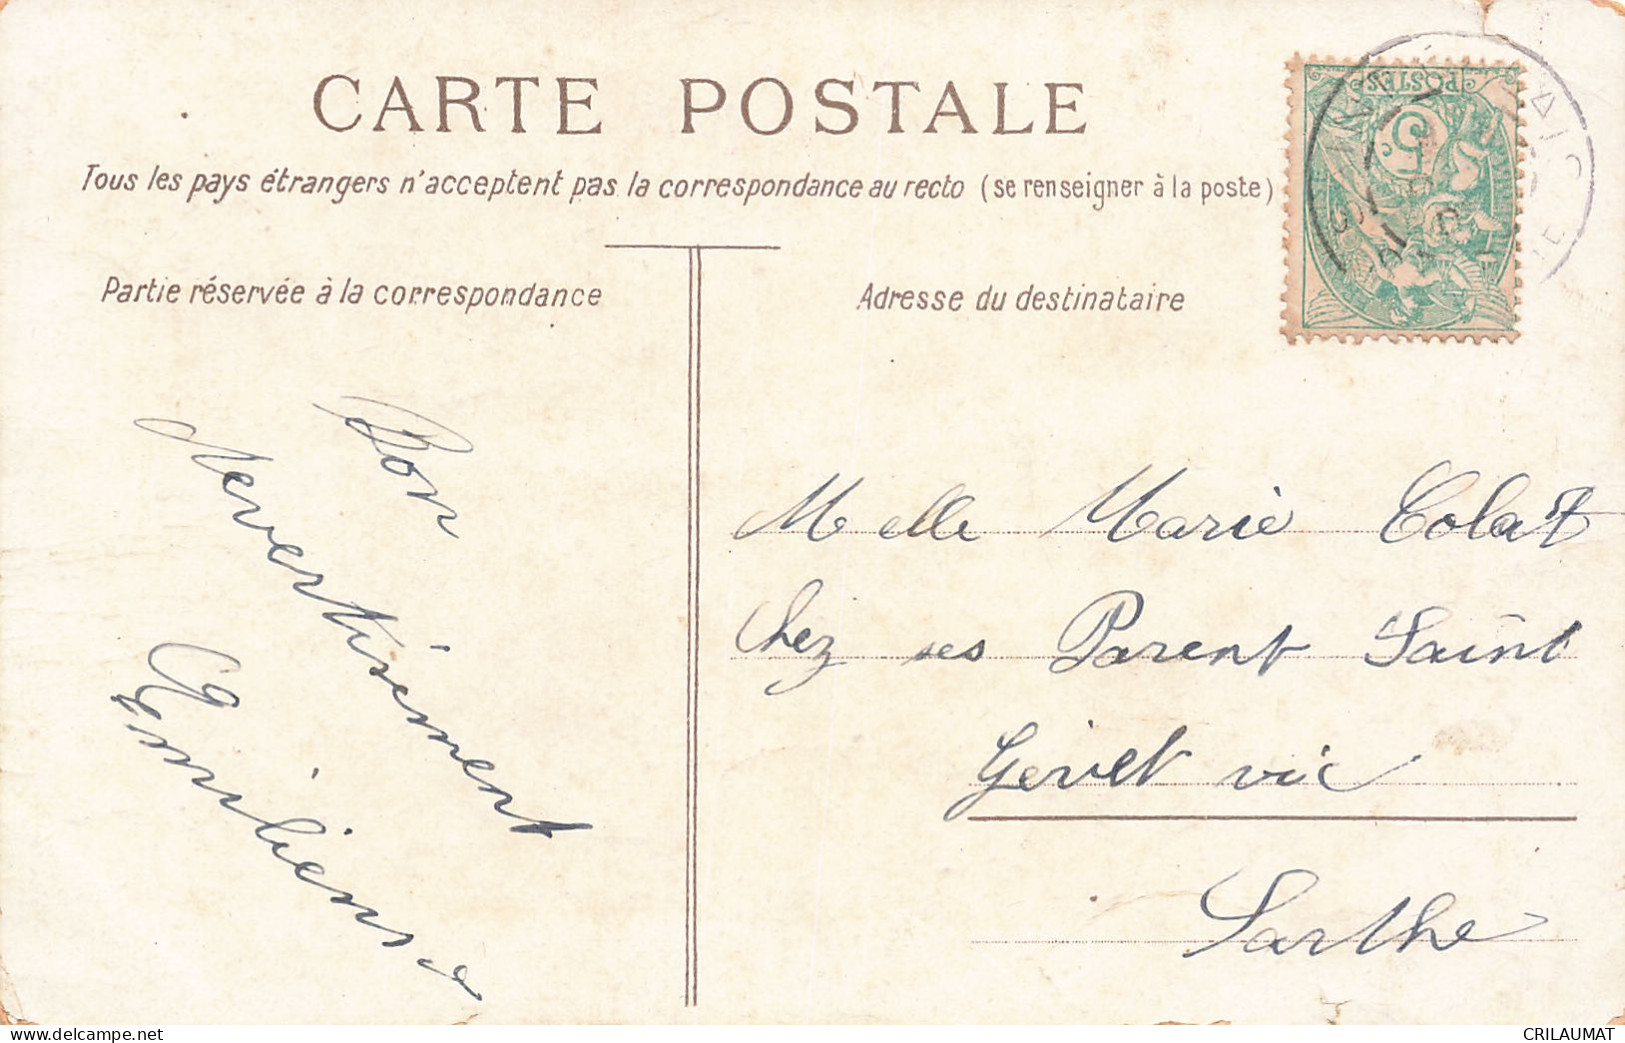 CARTE POSTALE
Tous les pays étrangers n'acceptent pas la correspondance au recto (se renseigner à la poste)
Partie réservée à la correspondance
Adresse du destinataire
POSTES
5
Bon
Nevertisément
Emilienne
Melle Marie Colat
Chez ses Parent Saint
Gervet vic
Sarthe
www.delcampe.net
CRILAUMAT